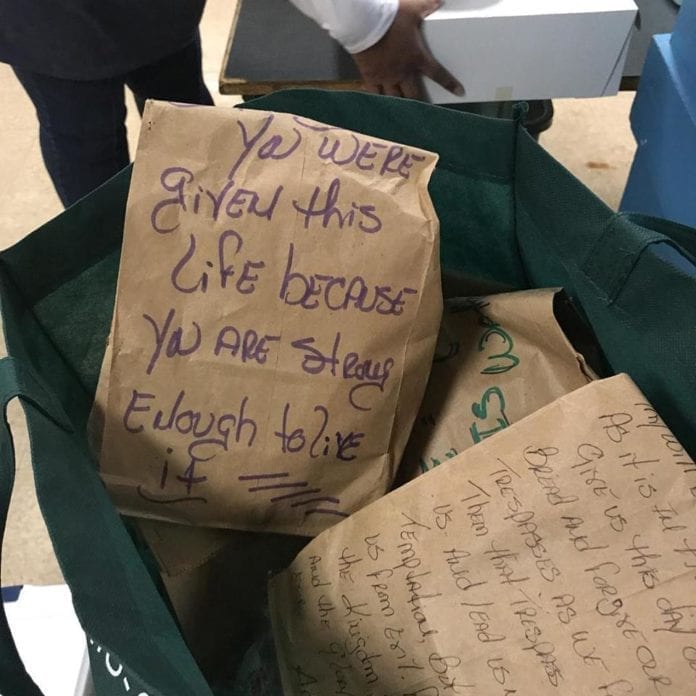 You WERE
given this
Life because
You ARE Strong
Enough to live
it
IS
As it is IN
Give us this day
Bread And forgive our
TRESPASSES AS WE
Them that TRESPASS
us. And lead us
Temptation, But
us from Evil.
the Kingdom
And the glory